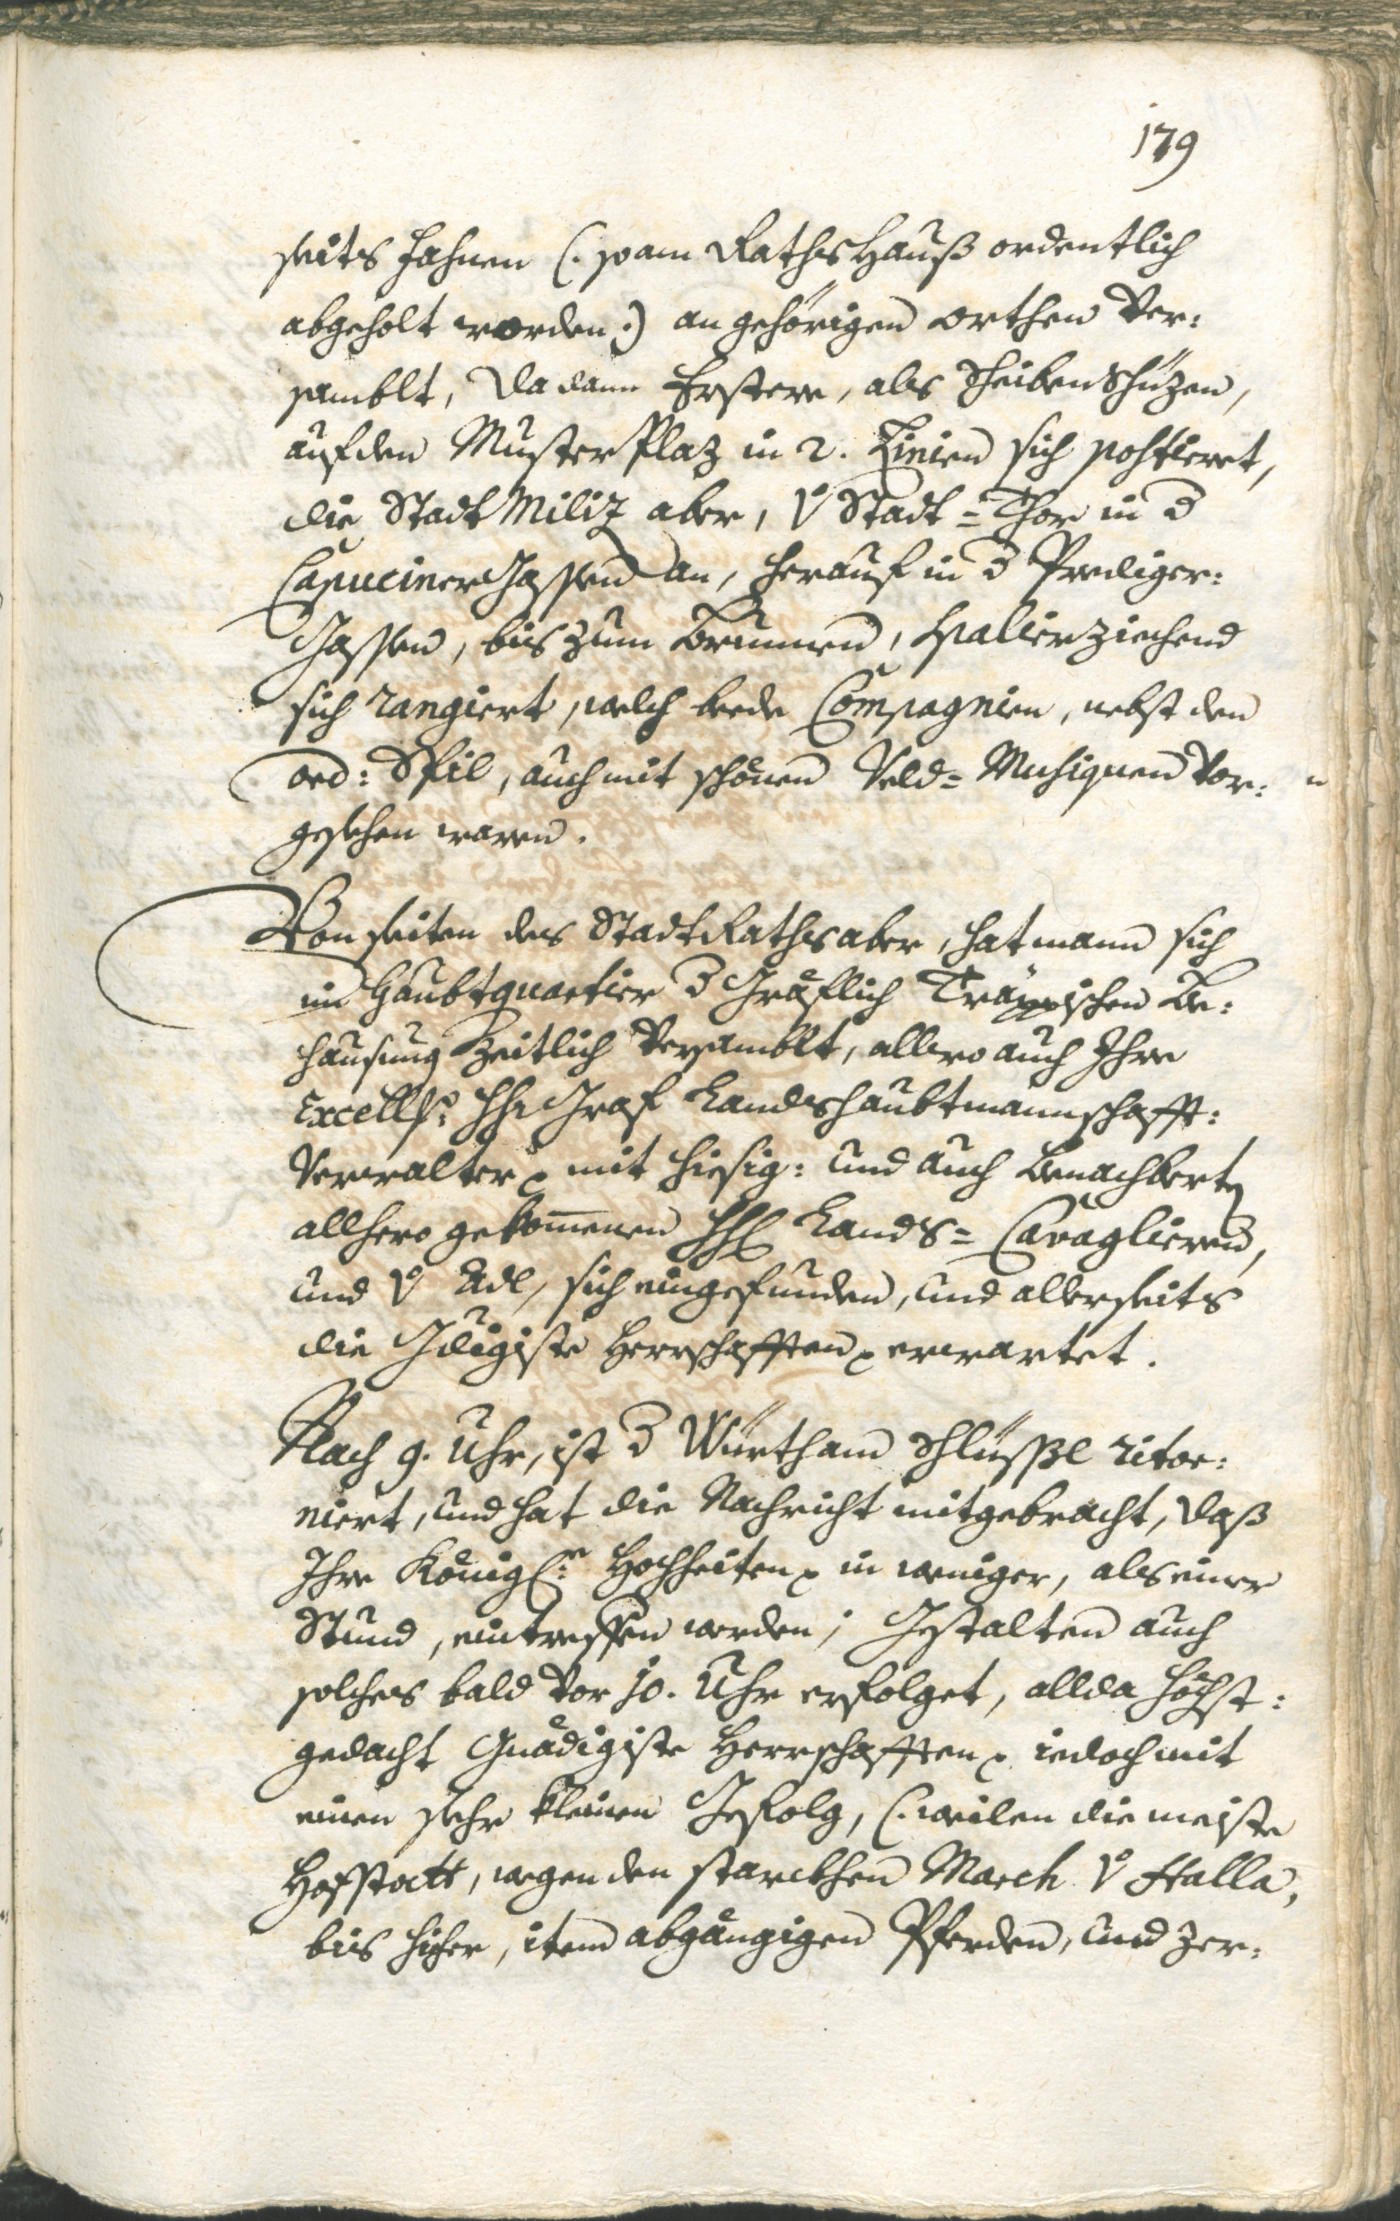 179
seits Fahnen (: so am Rathshauß ordentlich
abgeholt worden :) an gehörigen orthen Ver=
samblt, Da dann Erstere, als Scheibenschüzen,
auf den Muster Plaz in 2. Linien sich postieret,
die Stadt Miliz aber, v Stadt=Thor in d
Capuciner Gassen an, herauf in d Prediger=
Gassen, bis zum Brunnen, spalier ziechend
sich rangiert, welch beede Compagnien, nebst den
ord: Spil, auch mit schönen Veld=Musiquen Vor=
gesehen waren.
Von seiten des StadtRaths aber, hat mann sich
im Haubtquartier d Gräflich Trappischen Be=
hausung Zeitlich Versamblt, allwo auch Ihre
Excell: H: Graf Landshaubtmannschafft=
Verwalter mit hiesig: und auch benachberten
allhero gekommenen HH Lands=Cavaglieren,
und v Adl, sich eingefunden, und allerseits
die Gdigiste Herrschafften erwartet.
Nach 9. Uhr, ist d Würth am Schlüssl ritor=
niert, und hat die Nachricht mitgebracht, daß
Ihre Königl: Hochheiten in weniger, als einer
Stund, eintreffen werden; Gestalten auch
solches bald vor 10. Uhr erfolget, allda höchst=
gedacht Gnädigiste Herrschafften iedoch mit
einen sehr kleinen Gefolg, (: weilen die meiste
Hofstatt, wegen den starckhen March v Halla,
bis hieher, item abgängigen Pferden, und zer=